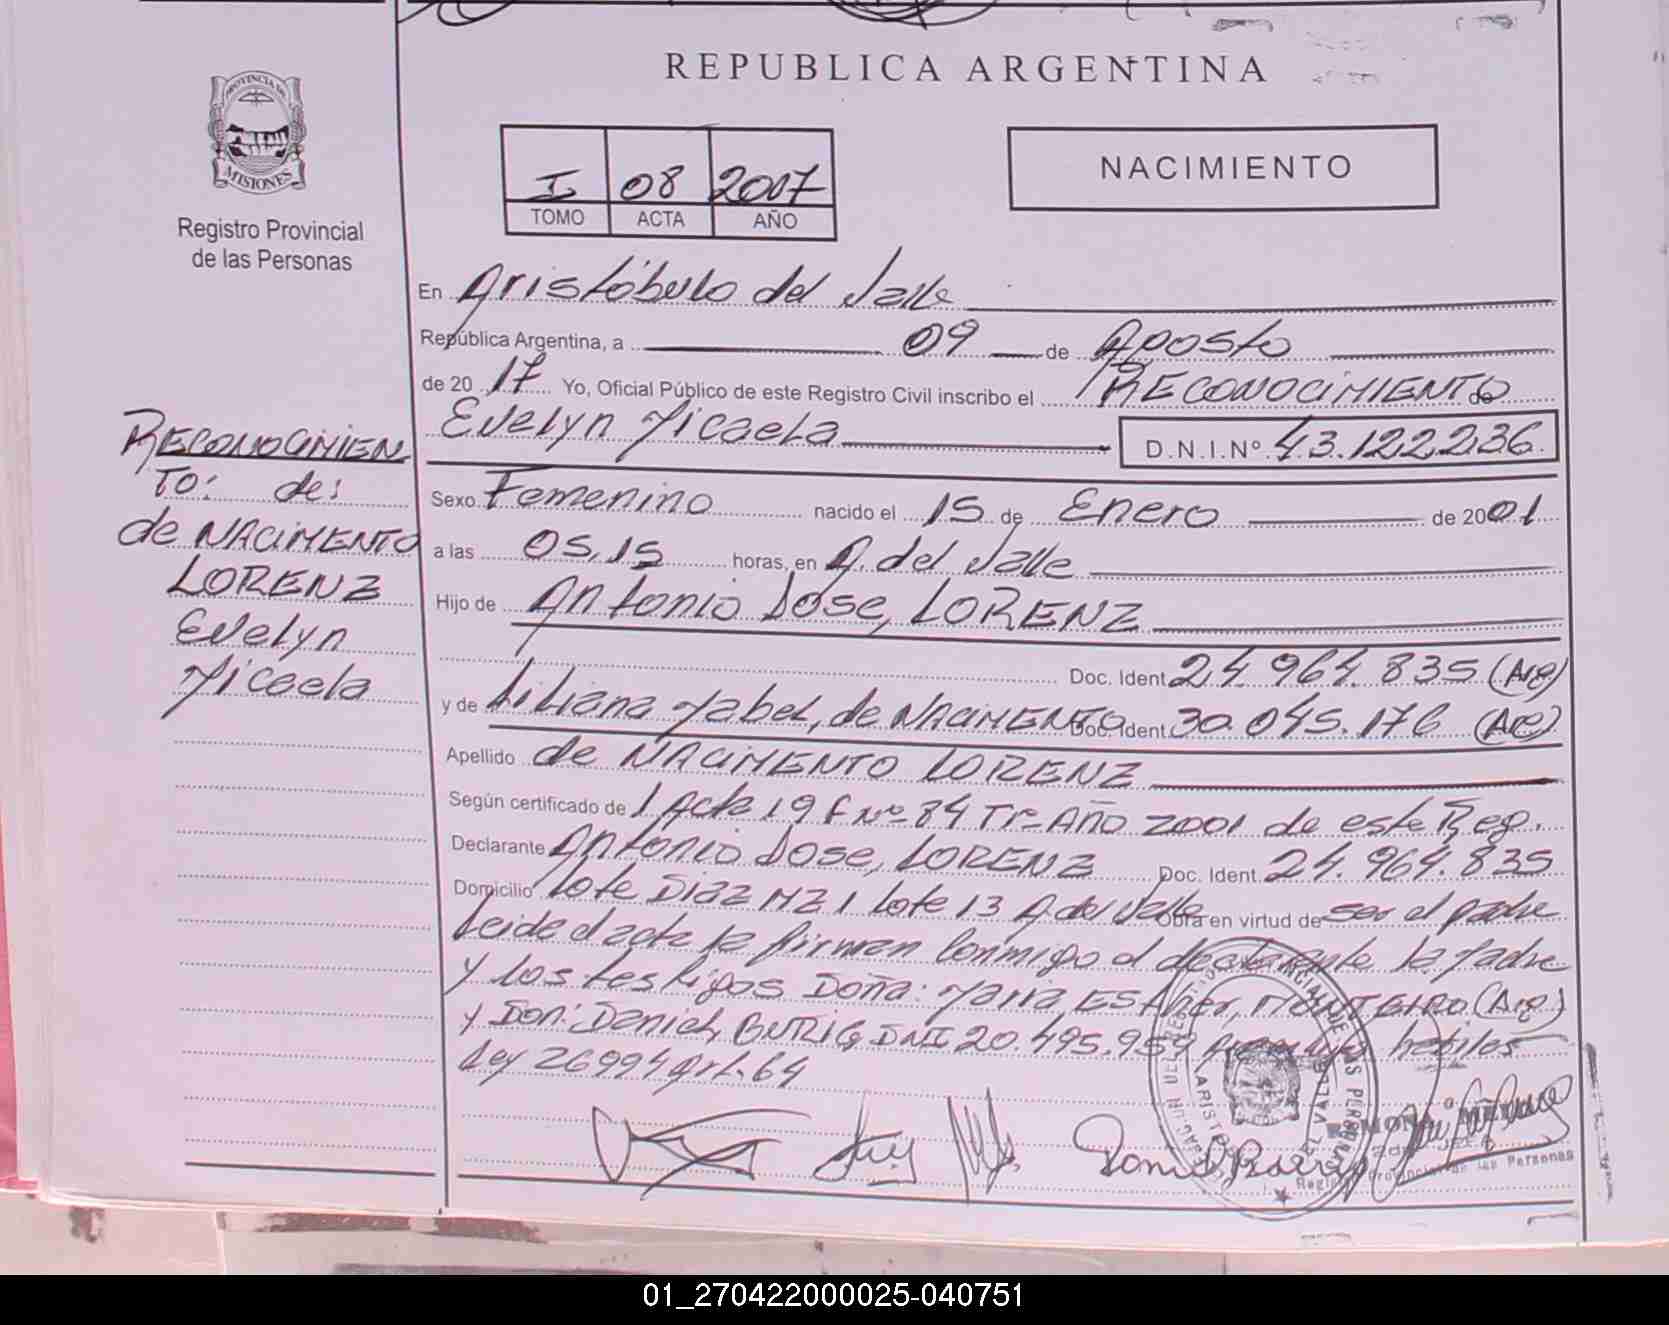 REPUBLICA ARGENTINA
PROVINCIA DE
MISIONES
Registro Provincial
de las Personas
I 08 2007
TOMO ACTA AÑO
NACIMIENTO
En Aristóbulo del Valle
República Argentina, a 09 de Agosto
de 20 17 Yo, Oficial Público de este Registro Civil inscribo el RECONOCIMIENTO de
Evelyn Micaela D.N.I.Nº 43.122.236
Sexo Femenino nacido el 15 de Enero de 2001
a las 05,15 horas, en A. del Valle
Hijo de Antonio Jose, LORENZ
Doc. Ident. 24.964.835 (Arg)
y de Liliana Mabel, de NACIMENTO Doc. Ident. 30.045.176 (Arg)
Apellido de NACIMENTO LORENZ
Según certificado de 1 Acta 19 f Nº 84 Tº I Año 2001 de este Reg.
Declarante Antonio Jose, LORENZ Doc. Ident. 24.964.835
Domicilio Lote Diaz MZ 1 Lote 13 A. del Valle Obra en virtud de ser el padre
Leida el acta la firman Conmigo el declarante la Madre
y los testigos Doña: Maria Esther, MONTEIRO (Arg)
y Don: Daniel, BURIG DNI 20.495.959 hábiles
Ley 26994 Art. 64
RECONOCIMIEN
TO: de:
de NACIMENTO
LORENZ
Evelyn
Micaela
Registro Provincial de las Personas
01_270422000025-040751